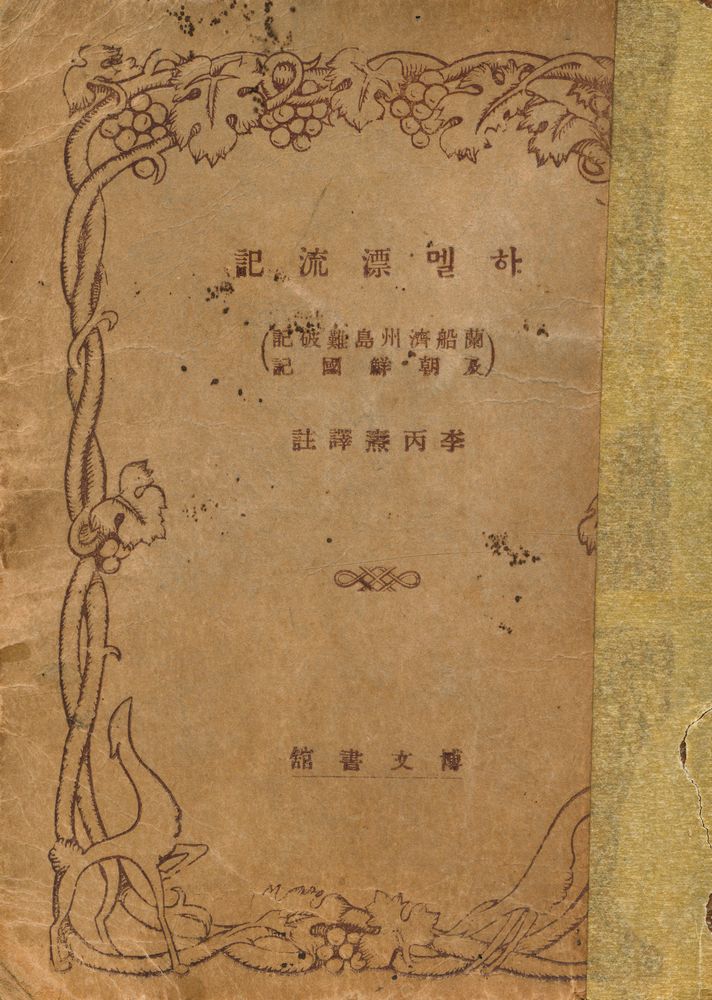 하멜漂流記
(蘭船濟州島難破記
及朝鮮國記)
李丙燾譯註
博文書舘